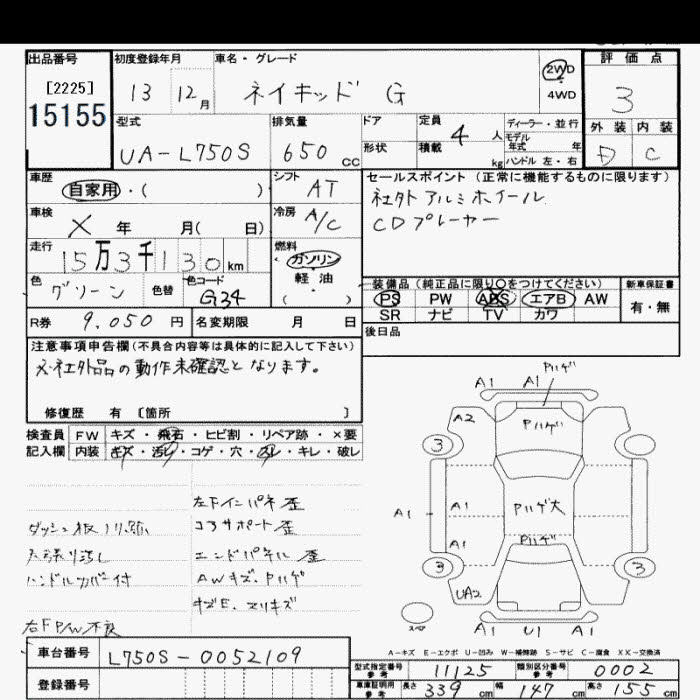 出品番号 初度登録年月 車名・グレード 評価点
[2225]
15155
13 12月 ネイキッド G 2WD 4WD 3
型式 排気量 ドア 定員 4人 ディーラー・並行 外装 内装
モデル年式 年
UA-L750S 650cc 形状 積載 kg ハンドル 左・右 D C
車歴 自家用・( ) シフト AT セールスポイント (正常に機能するものに限ります)
社外アルミホイール
CDプレーヤー
車検 × 年 月( 日) 冷房 A/C
走行 15万3千130km 燃料 ガソリン 軽油 ( )
色 グリーン 色替 色コード G34
装備品 (純正品に限り○をつけてください) 新車保証書
PS PW ABS エアB AW 有・無
SR ナビ TV カワ
R券 9.050円 名変期限 月 日 後日品
注意事項申告欄 (不具合内容等は具体的に記入して下さい)
※社外品の動作未確認となります。
修復歴 有 〔箇所 〕
検査員 FW キズ・飛石・ヒビ割・リペア跡・×要
記入欄 内装 キズ・汚レ・コゲ・穴・スレ・キレ・破レ
左下インパネ歪
コアサポート歪
天張り汚レ エンドパネル歪
ハンドルカバー付 AWキズ、Pハゲ
右FP/W不良
A1 A1 Pハゲ
A2 Pハゲ
3
A1 A1 Pハゲ大 A1
A1 Pハゲ
3 3
UA2
スペア A1 U1 A1
A-キズ E-エクボ U-凹み W-補修跡 S-サビ C-腐食 XX-交換済
車台番号 L750S-0052109
型式指定番号 11125 類別区分番号 0002
登録番号
車庫証明用参考 長さ 339cm 幅 147cm 高さ 155cm